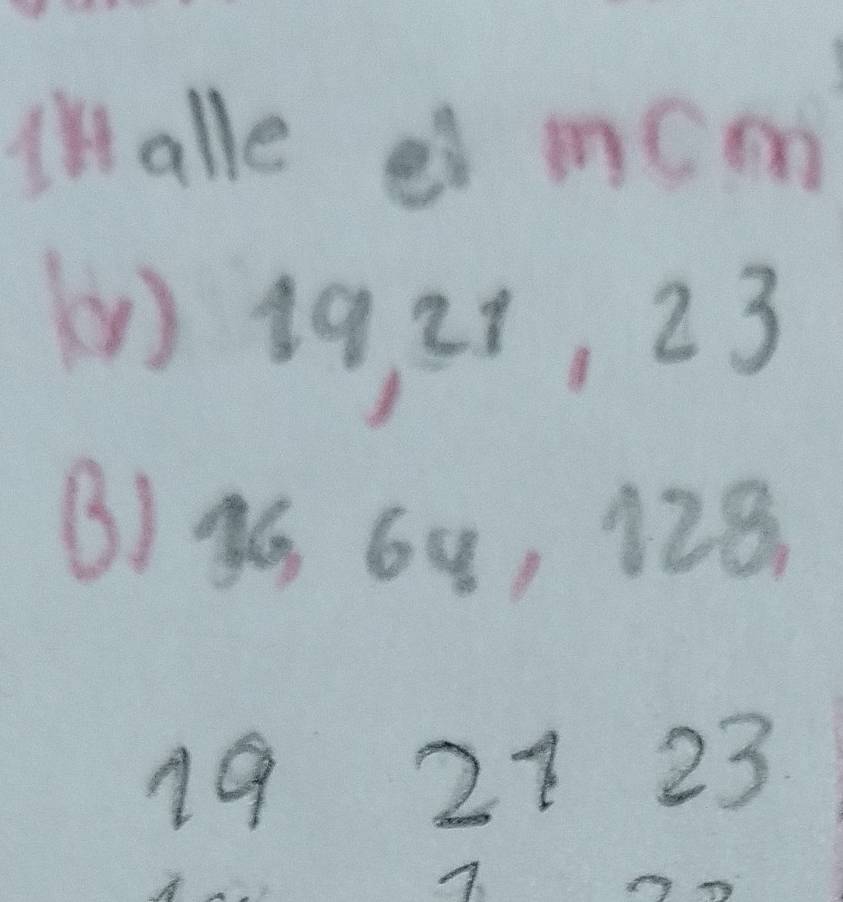 Halle el mcm
a) 19, 21, 23
B) 16, 64, 128,
19 21 23